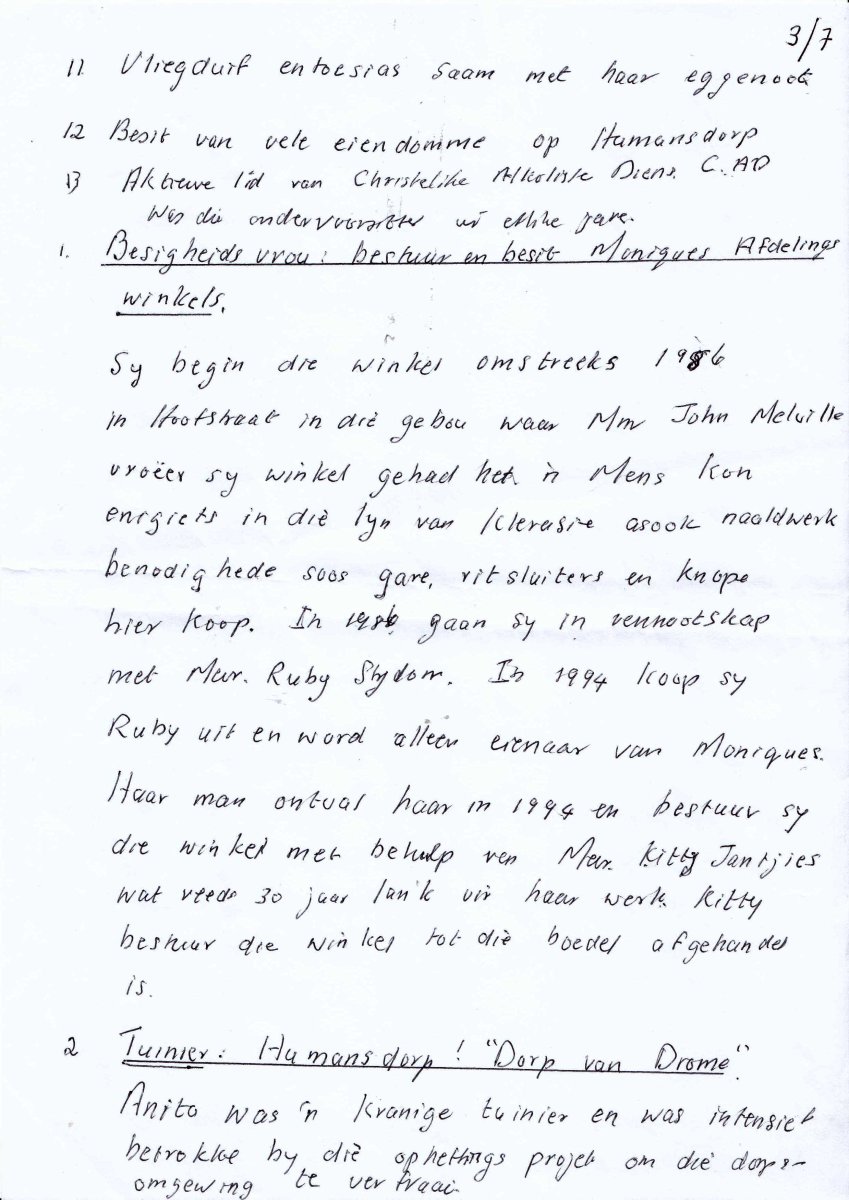 3/7
11 Vliegduif entoesias saam met haar eggenoot
12 Besit van vele eiendomme op Humansdorp
13 Aktiewe lid van Christelike Alkoliste Diens. C.AD
Was die ondervoorsitter vir etlike jare.
1. Besigheids vrou: bestuur en besit Moniques Afdelings
winkels.
Sy begin die winkel omstreeks 1986
in Hoofstraat in die gebou waar Mnr John Melville
vroëer sy winkel gehad het. 'n Mens kon
enigiets in die lyn van klerasie asook naaldwerk
benodighede soos gare, ritsluiters en knope
hier koop. In 1986 gaan sy in vennootskap
met Mev. Ruby Strydom. In 1994 koop sy
Ruby uit en word alleen eienaar van Moniques.
Haar man ontval haar in 1994 en bestuur sy
die winkel met behulp van Mev. Kitty Jantjies
wat reeds 30 jaar lank vir haar werk. Kitty
bestuur die winkel tot die boedel afgehandel
is.
2 Tuinier: Humansdorp! "Dorp van Drome".
Anita was 'n kranige tuinier en was intensief
betrokke by die opheffings projek om die dorps-
omgewing te verfraai.